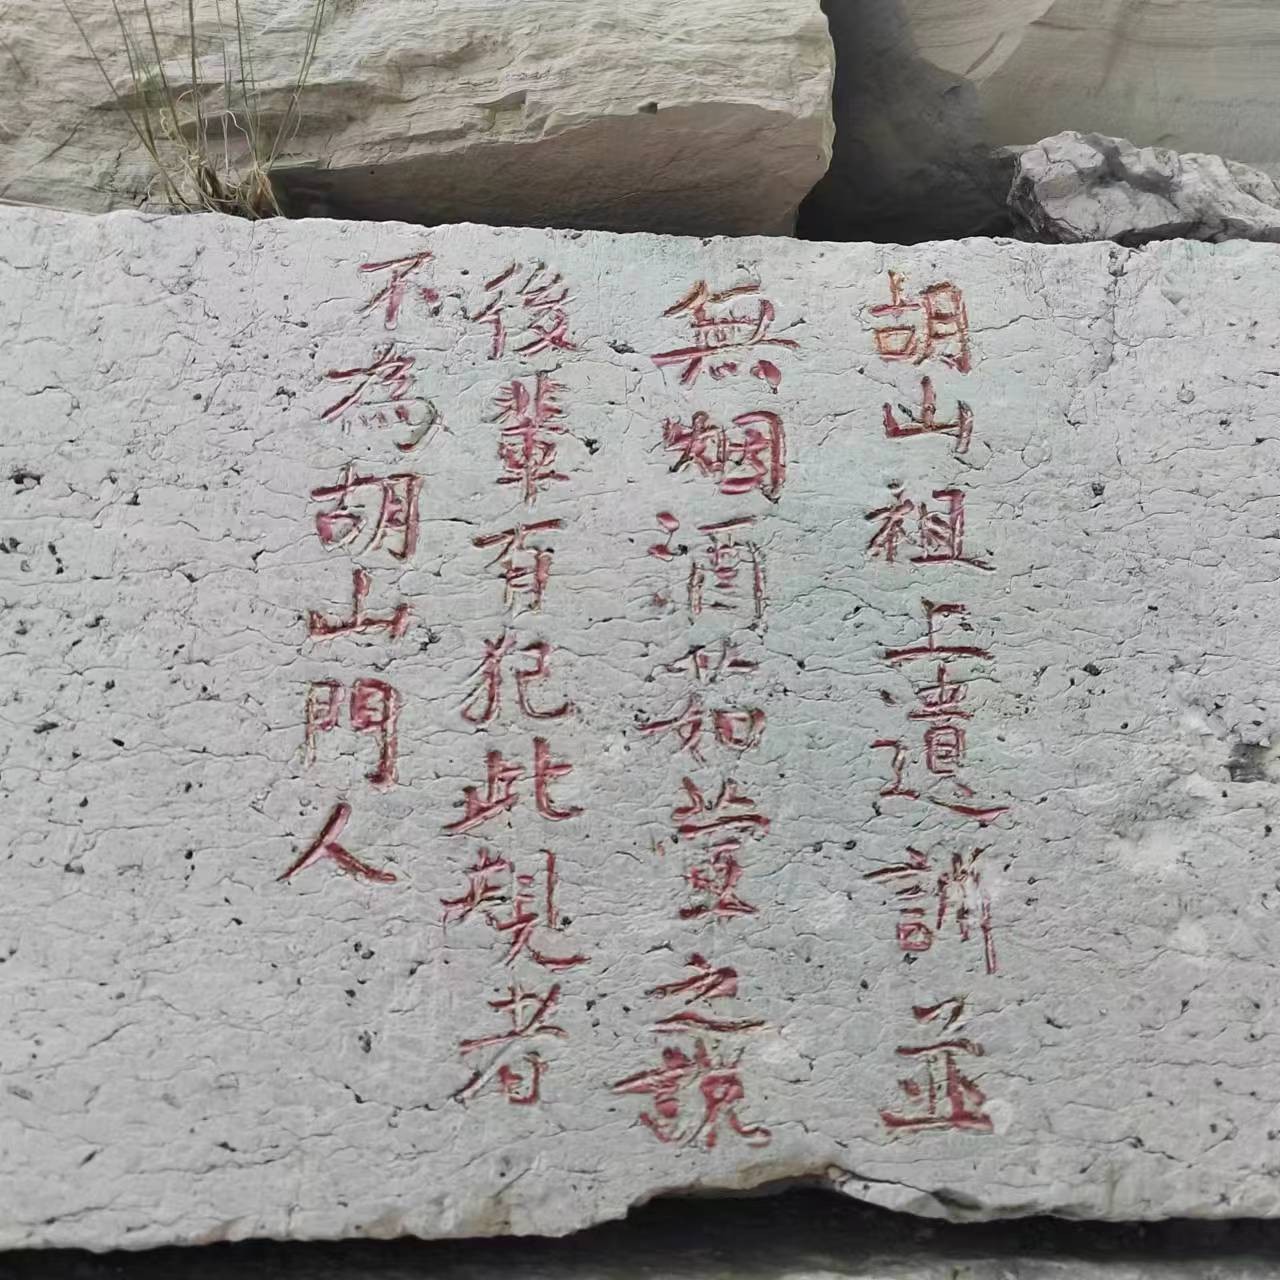 胡山祖上遺訓並
無烟酒茹葷之說
後輩有犯此規者
不為胡山門人